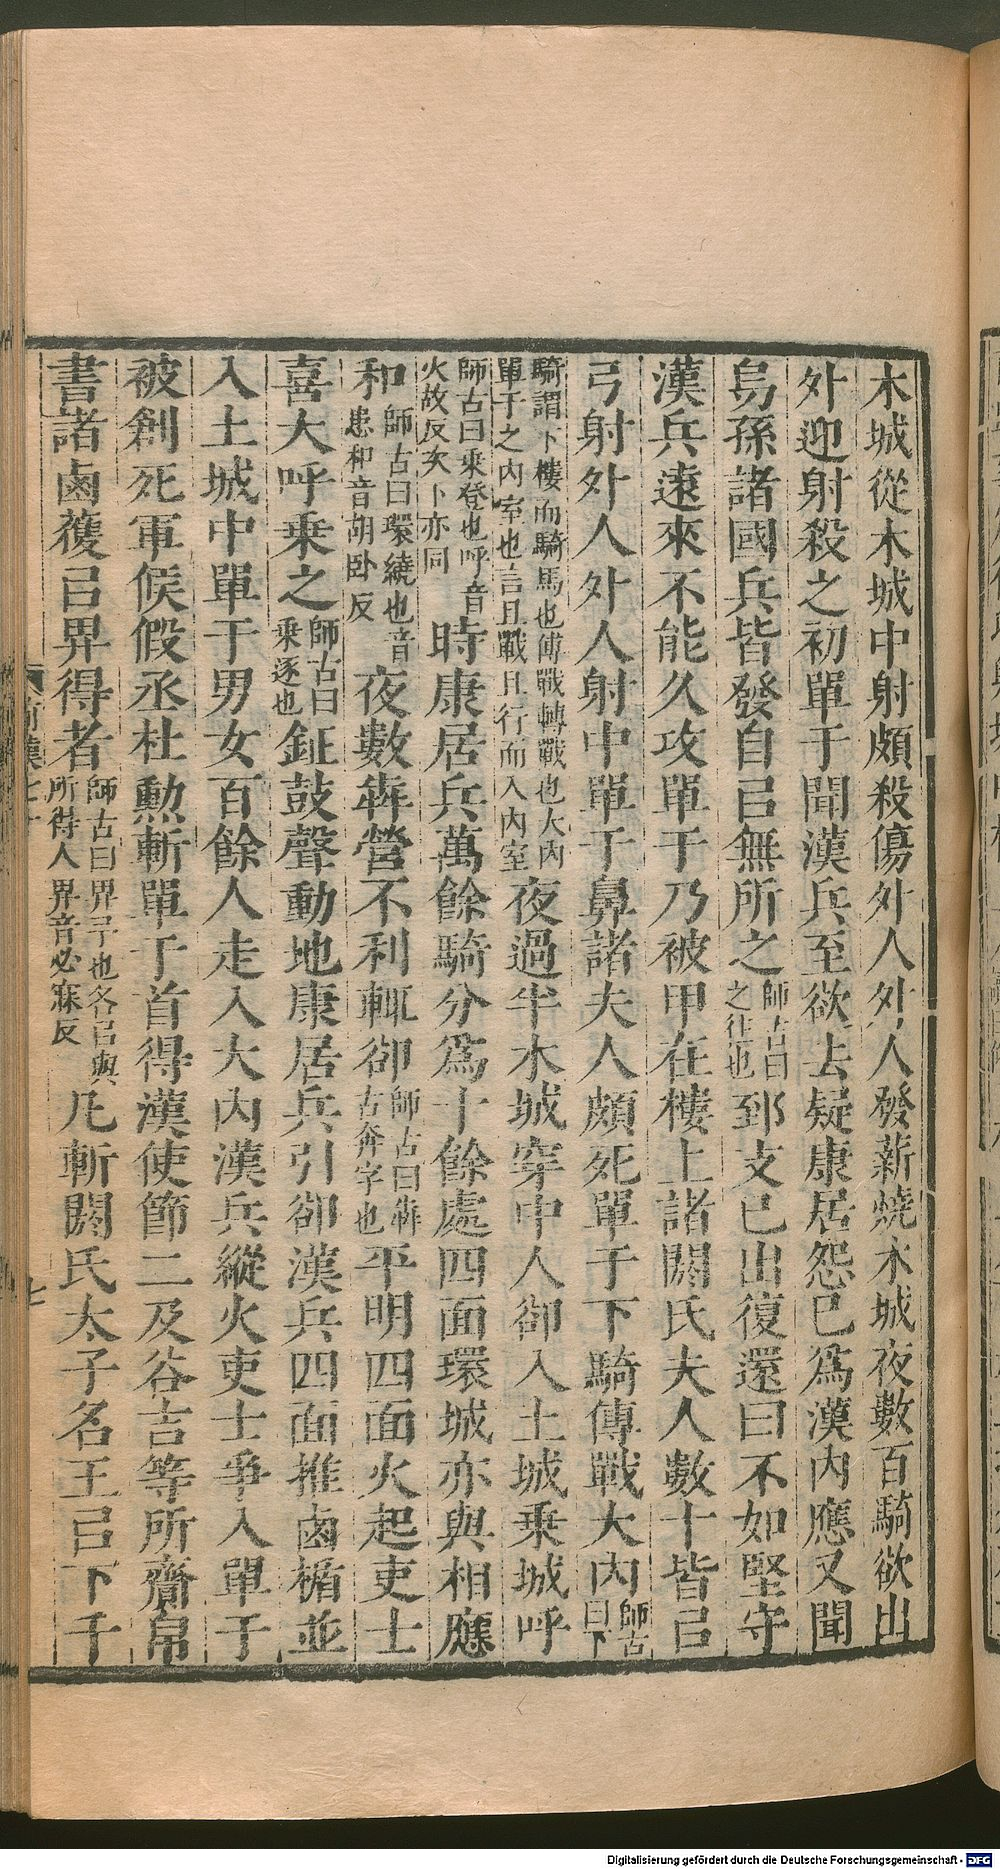 木城從木城中射頗殺傷外人外人發薪燒木城夜數百騎欲出
外迎射殺之初單于聞漢兵至欲去疑康居怨己爲漢内應又聞
烏孫諸國兵皆發自㠯無所之師古曰之往也郅支已出復還曰不如堅守
漢兵遠來不能久攻單于乃被甲在樓上諸閼氏夫人數十皆㠯
弓射外人外人射中單于鼻諸夫人頗死單于下騎傳戰大内師古曰下
騎謂下樓而騎馬也傳戰轉戰也大内單于之内室也言且戰且行而入内室夜過半木城穿中人卻入土城乘城呼
師古曰乘登也呼音火故反次下亦同時康居兵萬餘騎分爲十餘處四面環城亦與相應
和師古曰環繞也音患和音胡卧反夜數犇營不利輒卻師古曰犇古奔字也平明四面火起吏士
喜大呼乘之師古曰乘逐也鉦鼓聲動地康居兵引卻漢兵四面推鹵楯並
入土城中單于男女百餘人走入大内漢兵縱火吏士爭入單于
被創死軍候假丞杜勲斬單于首得漢使節二及谷吉等所齎帛
書諸鹵獲㠯畀得者師古曰畀予也各㠯與所得人畀音必寐反凡斬閼氏太子名王㠯下千
前漢七十
七
Digitalisierung gefördert durch die Deutsche Forschungsgemeinschaft - DFG